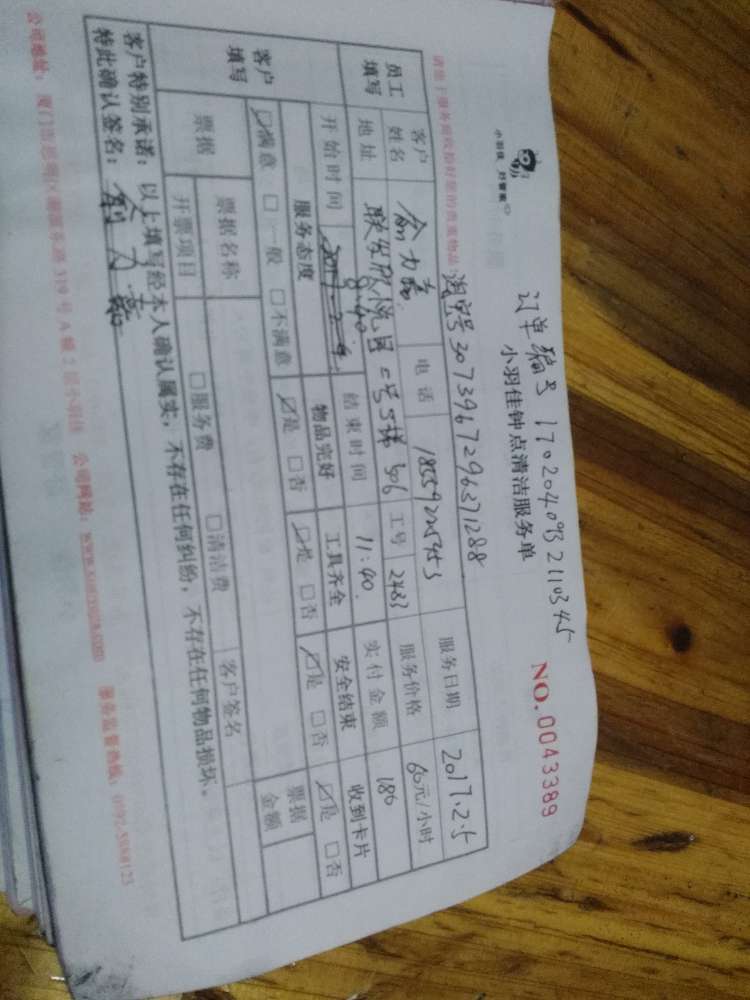 订单编号 1702040932110345
小羽佳 好管家
小羽佳钟点清洁服务单
NO.0043389
淘宝号3073967296371288
请您于服务前收拾好您的贵重物品
员工填写 客户姓名 电话 18559225453 服务日期 2017.2.5
地址 联发欣悦园二号5梯506 工号 2483 服务价格 60元/小时
开始时间 8:40 结束时间 11:40 实付金额 180
客户填写 服务态度 物品完好 工具齐全 安全结束 收到卡片
☑满意 □一般 □不满意 ☑是 □否 ☑是 □否 ☑是 □否 ☑是 □否
票据 票据名称 客户签名 票据金额
开票项目 □服务费 □清洁费
客户特别承诺：以上填写经本人确认属实，不存在任何纠纷，不存在任何物品损坏。
特此确认签名：
公司地址：厦门市思明区 319号A幢2层小羽佳 公司网站：www.xiaoyujia.com 服务监督热线：0592-5588123